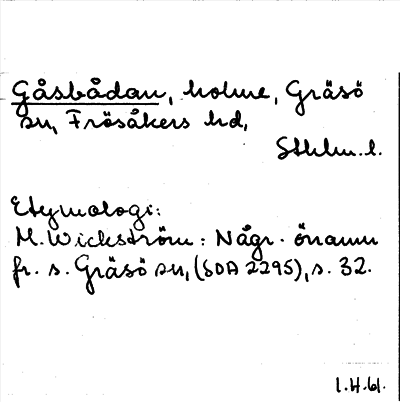 Gåsbådan, holme, Gräsö
sn, Frösåkers hd,
Sthlm. l.
Etymologi:
M. Wickström: Någr. önamn
fr. s. Gräsö sn, (SOA 2295), s. 32.
1.H.61.